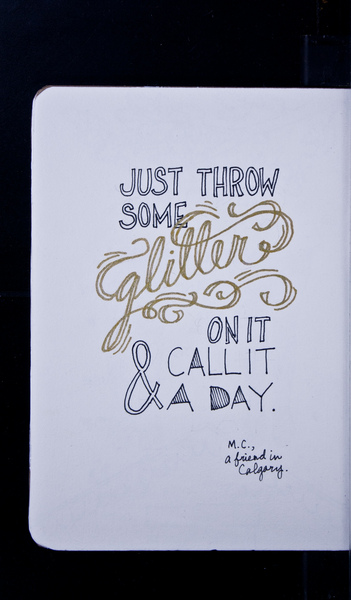 JUST THROW
SOME
glitter
ON IT
& CALL IT
A DAY.
M.C.,
a friend in
Calgary.